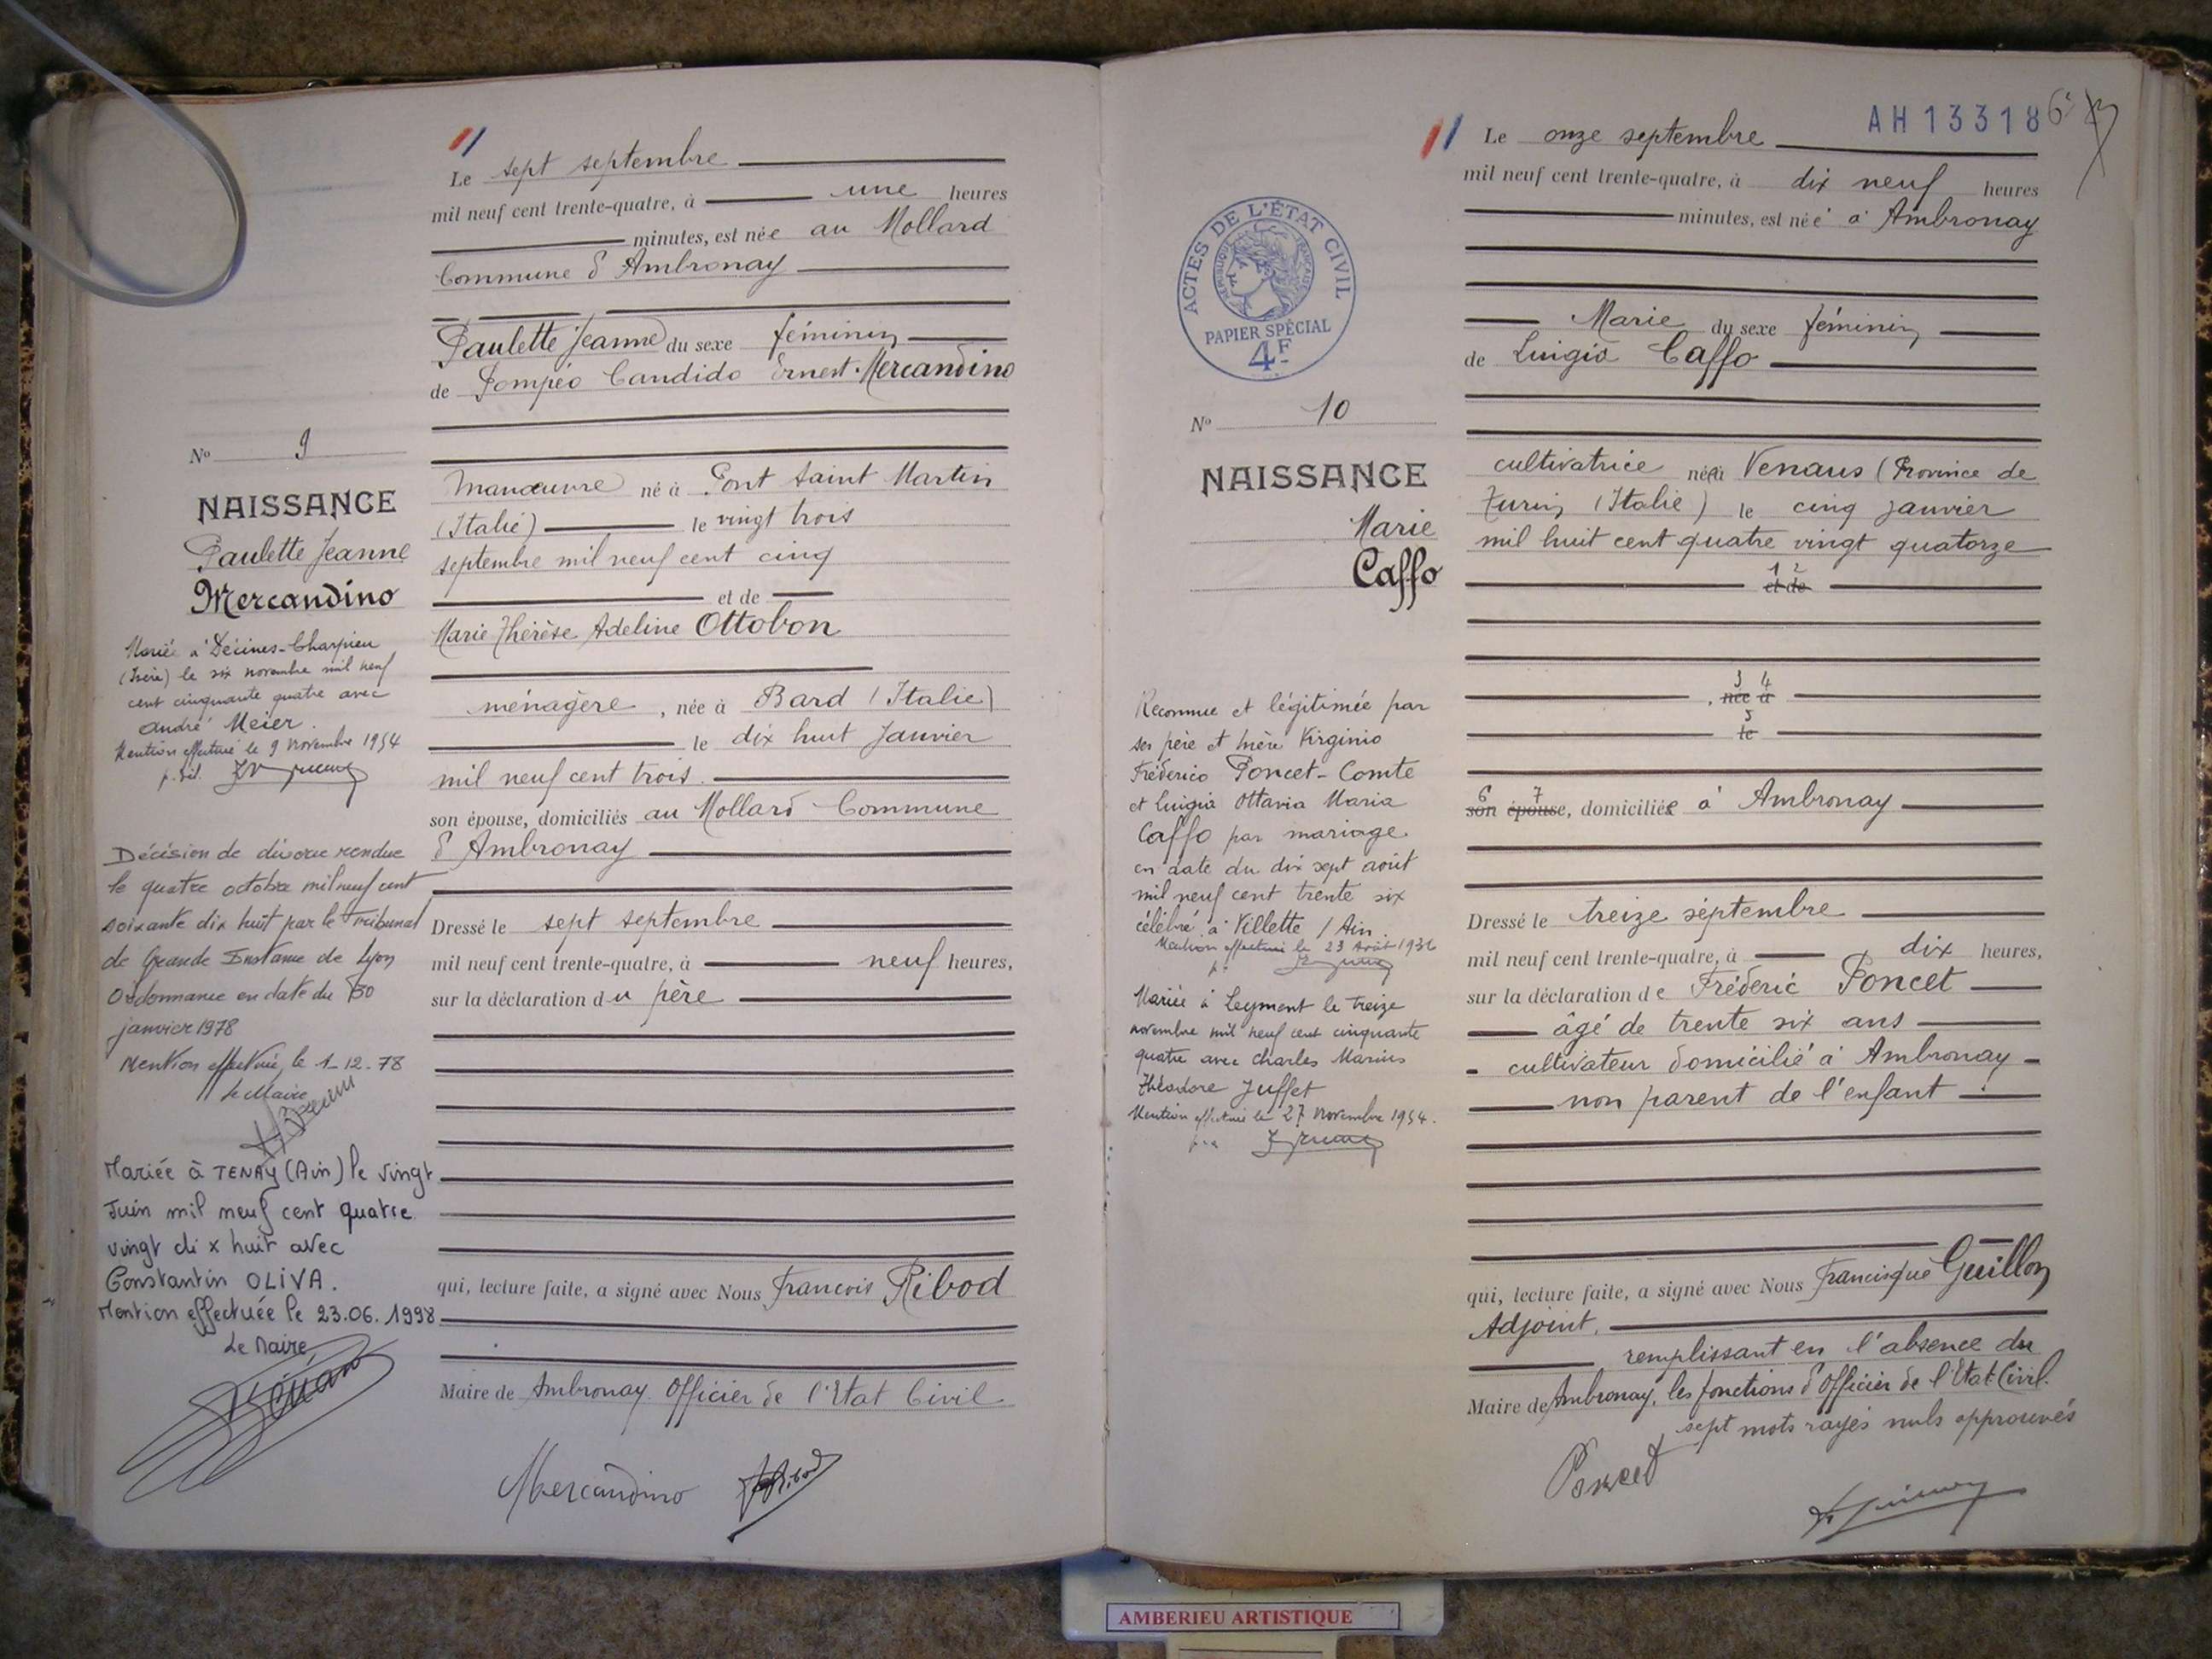 Le sept septembre
mil neuf cent trente-quatre, à une heures
minutes, est née au Mollard
Commune d'Ambronay
Paulette Jeanne du sexe féminin
de Pompéo Candido Ernest Mercandino
manœuvre né à Pont Saint Martin
(Italie) le vingt trois
septembre mil neuf cent cinq
et de
Marie Thérèse Adeline Ottobon
ménagère, née à Bard (Italie)
le dix huit Janvier
mil neuf cent trois.
son épouse, domiciliés au Mollard Commune
d'Ambronay
Dressé le sept septembre
mil neuf cent trente-quatre, à neuf heures,
sur la déclaration du père
qui, lecture faite, a signé avec Nous François Ribod
Maire de Ambronay Officier de l'Etat Civil
Mercandino
No 9
NAISSANCE
Paulette Jeanne
Mercandino
Mariée à Décines-Charpieu
(Isère) le six novembre mil neuf
cent cinquante quatre avec
André Meier.
Mention effectuée le 9 novembre 1954
Décision de divorce rendue
le quatre octobre mil neuf cent
soixante dix huit par le Tribunal
de Grande Instance de Lyon
Ordonnance en date du 30
janvier 1978
Mention effectuée le 1-12-78
Le Maire
Mariée à TENAY (Ain) le vingt
Juin mil neuf cent quatre
vingt dix huit avec
Constantin OLIVA.
Mention effectuée le 23.06.1998
Le Maire,
AH 13318
Le onze septembre
mil neuf cent trente-quatre, à dix neuf heures
minutes, est née à Ambronay
Marie du sexe féminin
de Luigia Caffo
cultivatrice née à Venaus (Province de
Turin (Italie) le cinq janvier
mil huit cent quatre vingt quatorze
1 2
et de
3 4
, née à
5
le
6 7
son épouse, domiciliée à Ambronay
Dressé le treize septembre
mil neuf cent trente-quatre, à dix heures,
sur la déclaration de Fréderic Poncet
âgé de trente six ans
cultivateur domicilié à Ambronay
non parent de l'enfant
qui, lecture faite, a signé avec Nous Francisque Guillon
Adjoint,
remplissant en l'absence du
Maire de Ambronay, les fonctions d'Officier de l'Etat-Civil.
sept mots rayés nuls approuvés
Poncet
ACTES DE L'ÉTAT CIVIL
RÉPUBLIQUE FRANÇAISE
PAPIER SPÉCIAL
4F
No 10
NAISSANCE
Marie
Caffo
Reconnue et légitimée par
ses père et mère Virginio
Fréderico Poncet-Comte
et Luigia Ottavia Maria
Caffo par mariage
en date du dix sept août
mil neuf cent trente six
célébré à Villette (Ain.
Mention effectuée le 23 Août 1936
Mariée à Leyment le treize
novembre mil neuf cent cinquante
quatre avec Charles Marius
Théodore Juffet
Mention effectuée le 27 novembre 1954.
AMBERIEU ARTISTIQUE